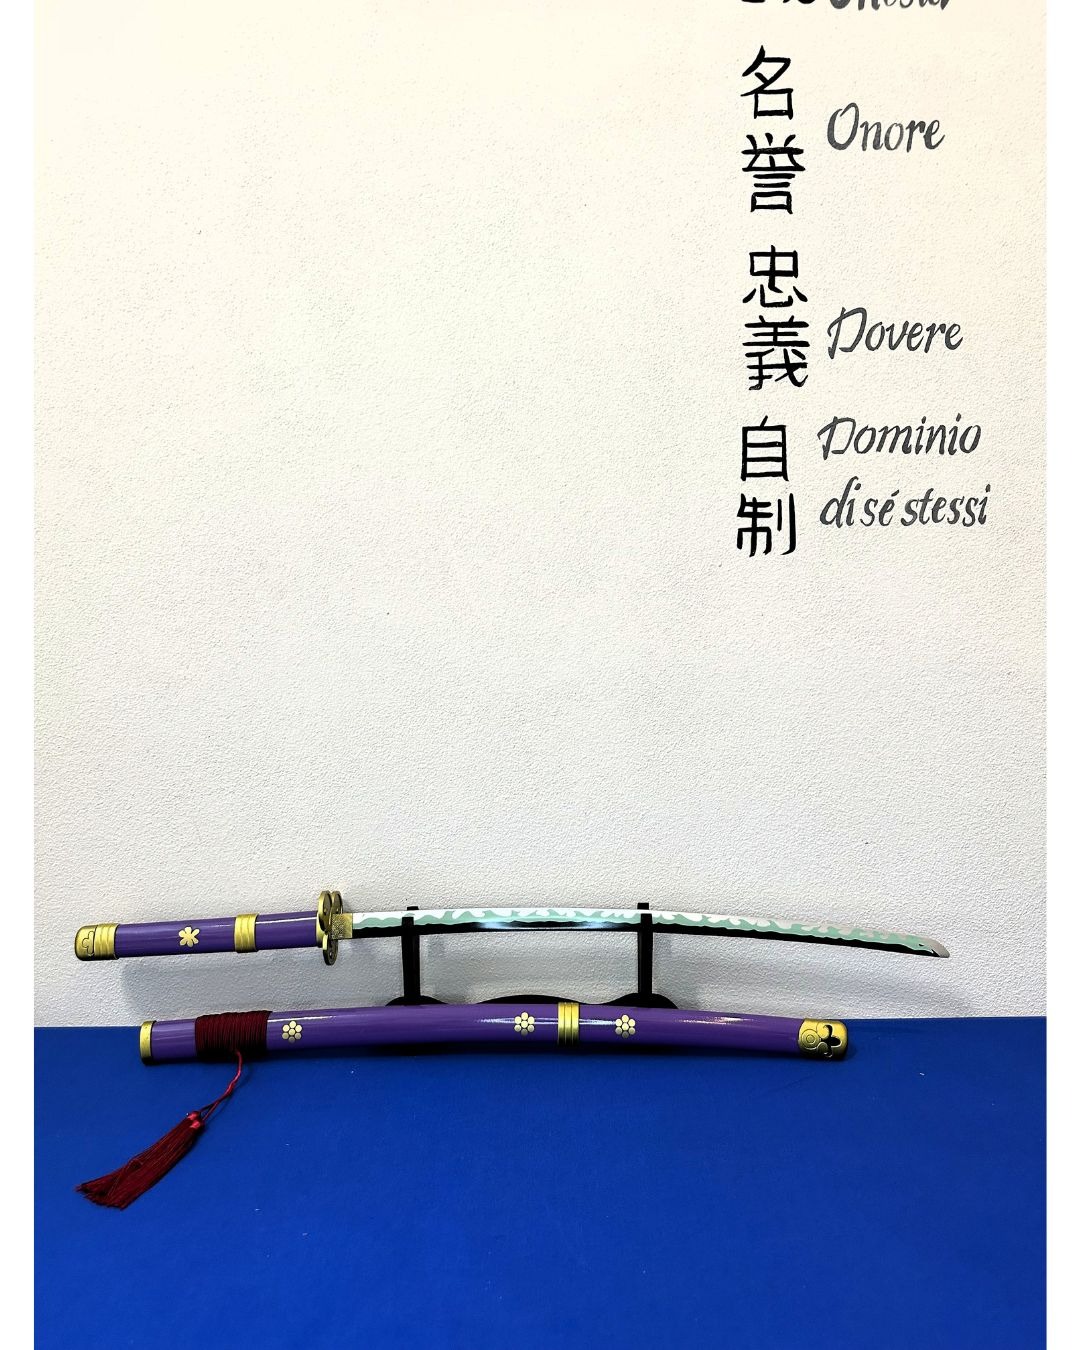 名誉 Onore
忠義 Dovere
自制 Dominio
di sé stessi